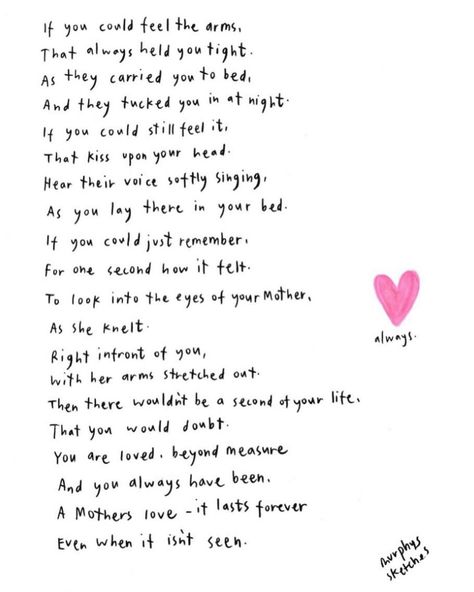 If you could feel the arms,
That always held you tight.
As they carried you to bed,
And they tucked you in at night.
If you could still feel it,
That kiss upon your head.
Hear their voice softly singing,
As you lay there in your bed.
If you could just remember,
For one second how it felt.
To look into the eyes of your Mother,
As she knelt.
Right infront of you,
With her arms stretched out.
Then there wouldn't be a second of your life,
That you would doubt.
You are loved. beyond measure
And you always have been.
A Mothers love - it lasts forever
Even when it isn't seen.
always.
murphys
sketches